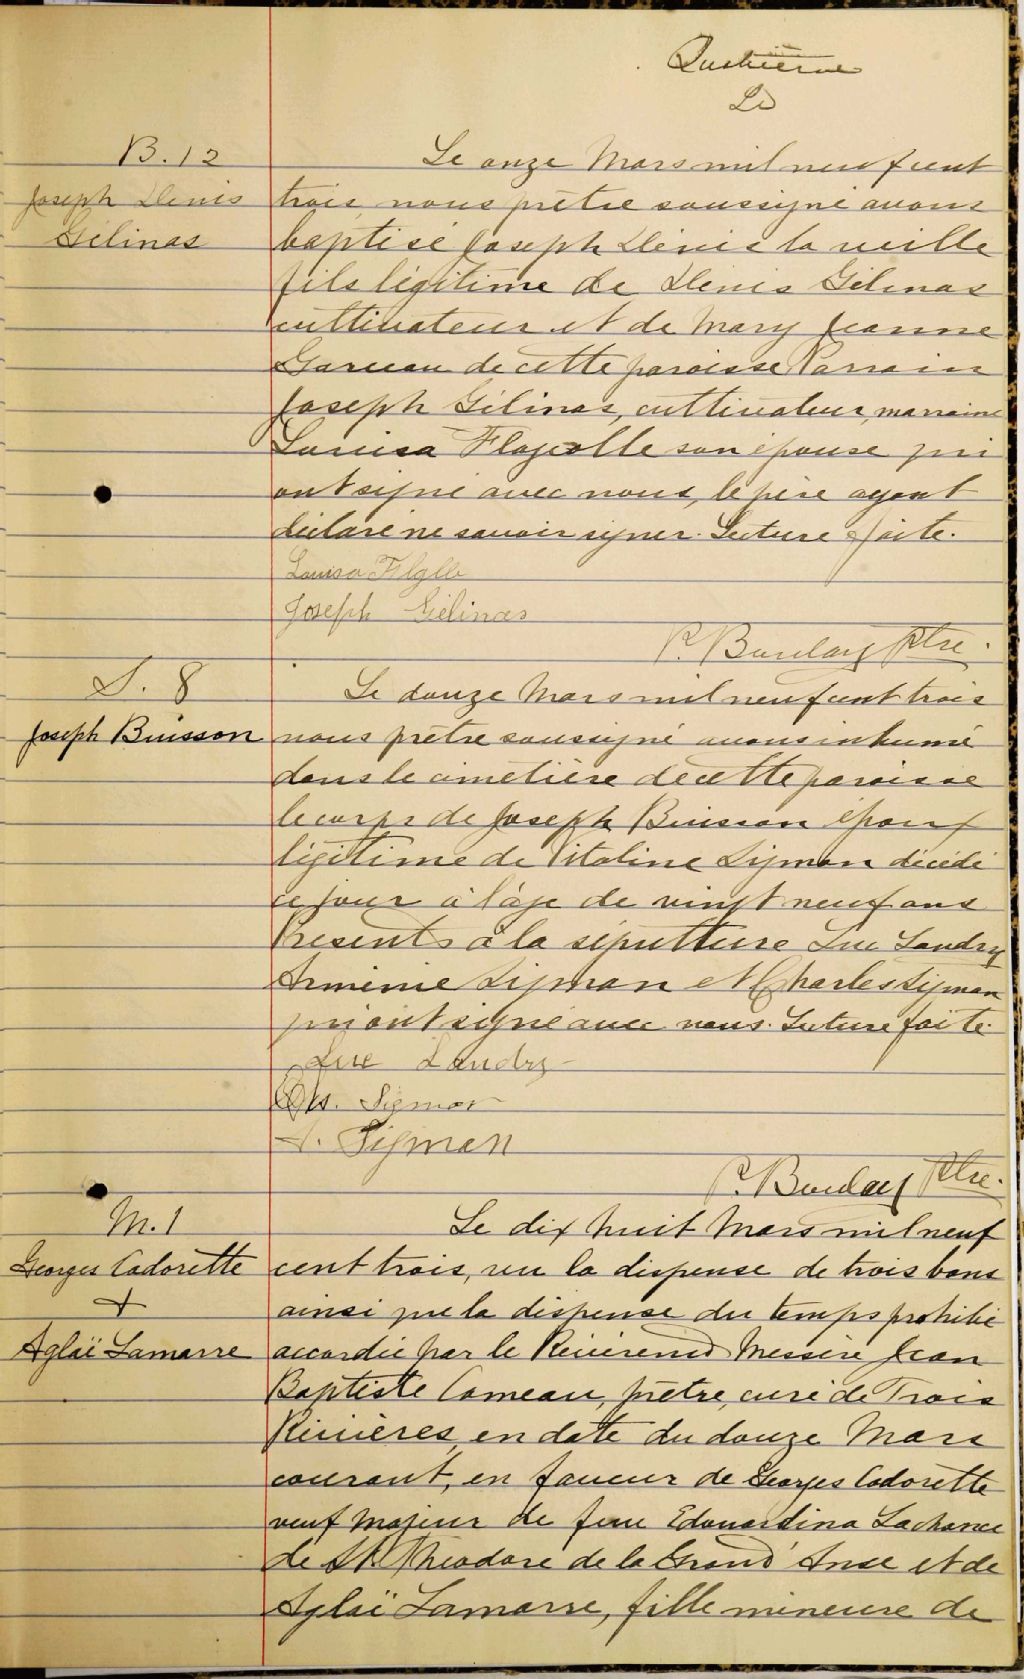 Quatrième
Le
B. 12
Joseph Denis
Gélinas
Le onze Mars mil neuf cent
trois, nous prêtre soussigné avons
baptisé Joseph Denis la veille
fils légitime de Denis Gélinas
cultivateur et de Mary Jeanne
Garceau de cette paroisse Parrain
Joseph Gélinas, cultivateur, marraine
Louisa Flageolle son épouse qui
ont signé avec nous, le père ayant
déclaré ne savoir signer. Lecture faite.
Louisa
Joseph Gélinas
P. Boulay Ptre.
S. 8
Joseph Buisson
Le douze Mars mil neuf cent trois
nous prêtre soussigné avons inhumé
dans le cimetière de cette paroisse
le corps de Joseph Buisson époux
légitime de Vitaline Sigman décédé
ce jour à l'âge de vingt neuf ans
Présents à la sépulture Luc Landry
Arménie Sigman et Charles Sigman
qui ont signé avec nous. Lecture faite.
Luc Landry
Chs. Sigman
A. Sigman
P. Boulay Ptre.
M. 1
Georges Cadorette
+
Aglaï Lamarre
Le dix huit Mars mil neuf
cent trois, vu la dispense de trois bans
ainsi que la dispense du temps prohibé
accordée par le Révérend Messire Jean
Baptiste Comeau, prêtre, curé de Trois
Rivières, en date du douze Mars
courant, en faveur de Georges Cadorette
veuf majeur de feue Edouardina Lachance
de St Théodore de la Grand' Anse et de
Aglaï Lamarre, fille mineure de